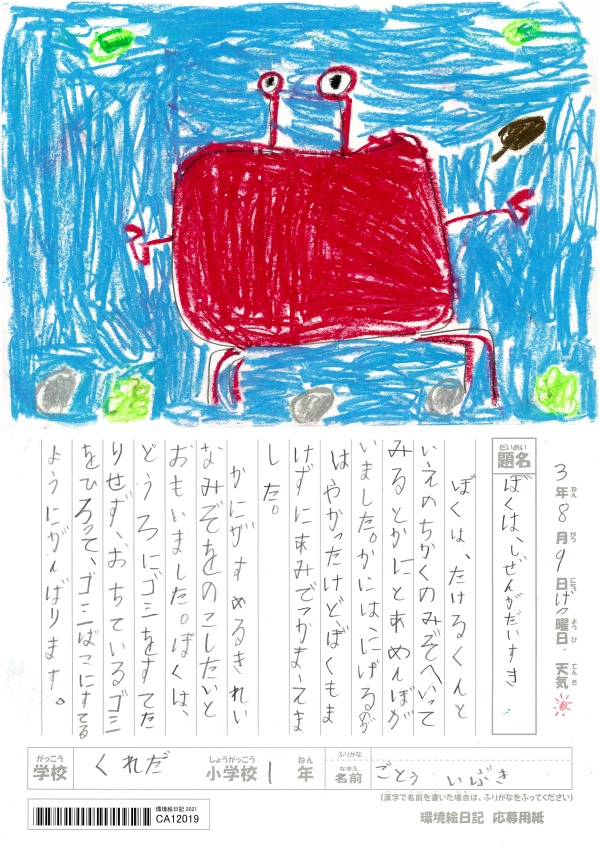 3年ねん8月がつ9日にちげつ曜ようび日 天気てんき
だいめい
題名
ぼくは、しぜんがだいすき
ぼくは、たけるくんと
いえのちかくのみぞへいって
みるとかにとあめんぼが
いました。かには、にげるのが
はやかったけどぼくもま
けずにあみでつかまえま
した。
かにがすめるきれい
なみぞをのこしたいと
おもいました。ぼくは、
どうろにゴミをすてた
りせず、おちているゴミ
をひろって、ゴミばこにすてる
ようにがんばります。
がっこう
学校
くれだ
しょうがっこう
小学校
1
ねん
年
ふりがな
なまえ
名前
ごとう いぶき
(漢字で名前を書いた場合は、ふりがなをふってください)
環境絵日記 2021
CA12019
環境絵日記 応募用紙